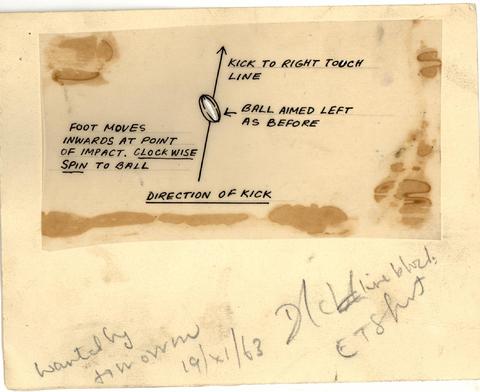 KICK TO RIGHT TOUCH
LINE
← BALL AIMED LEFT
AS BEFORE
FOOT MOVES
INWARDS AT POINT
OF IMPACT. CLOCKWISE
SPIN TO BALL
DIRECTION OF KICK
Wanted by
tomorrow
19/XI/63
line block